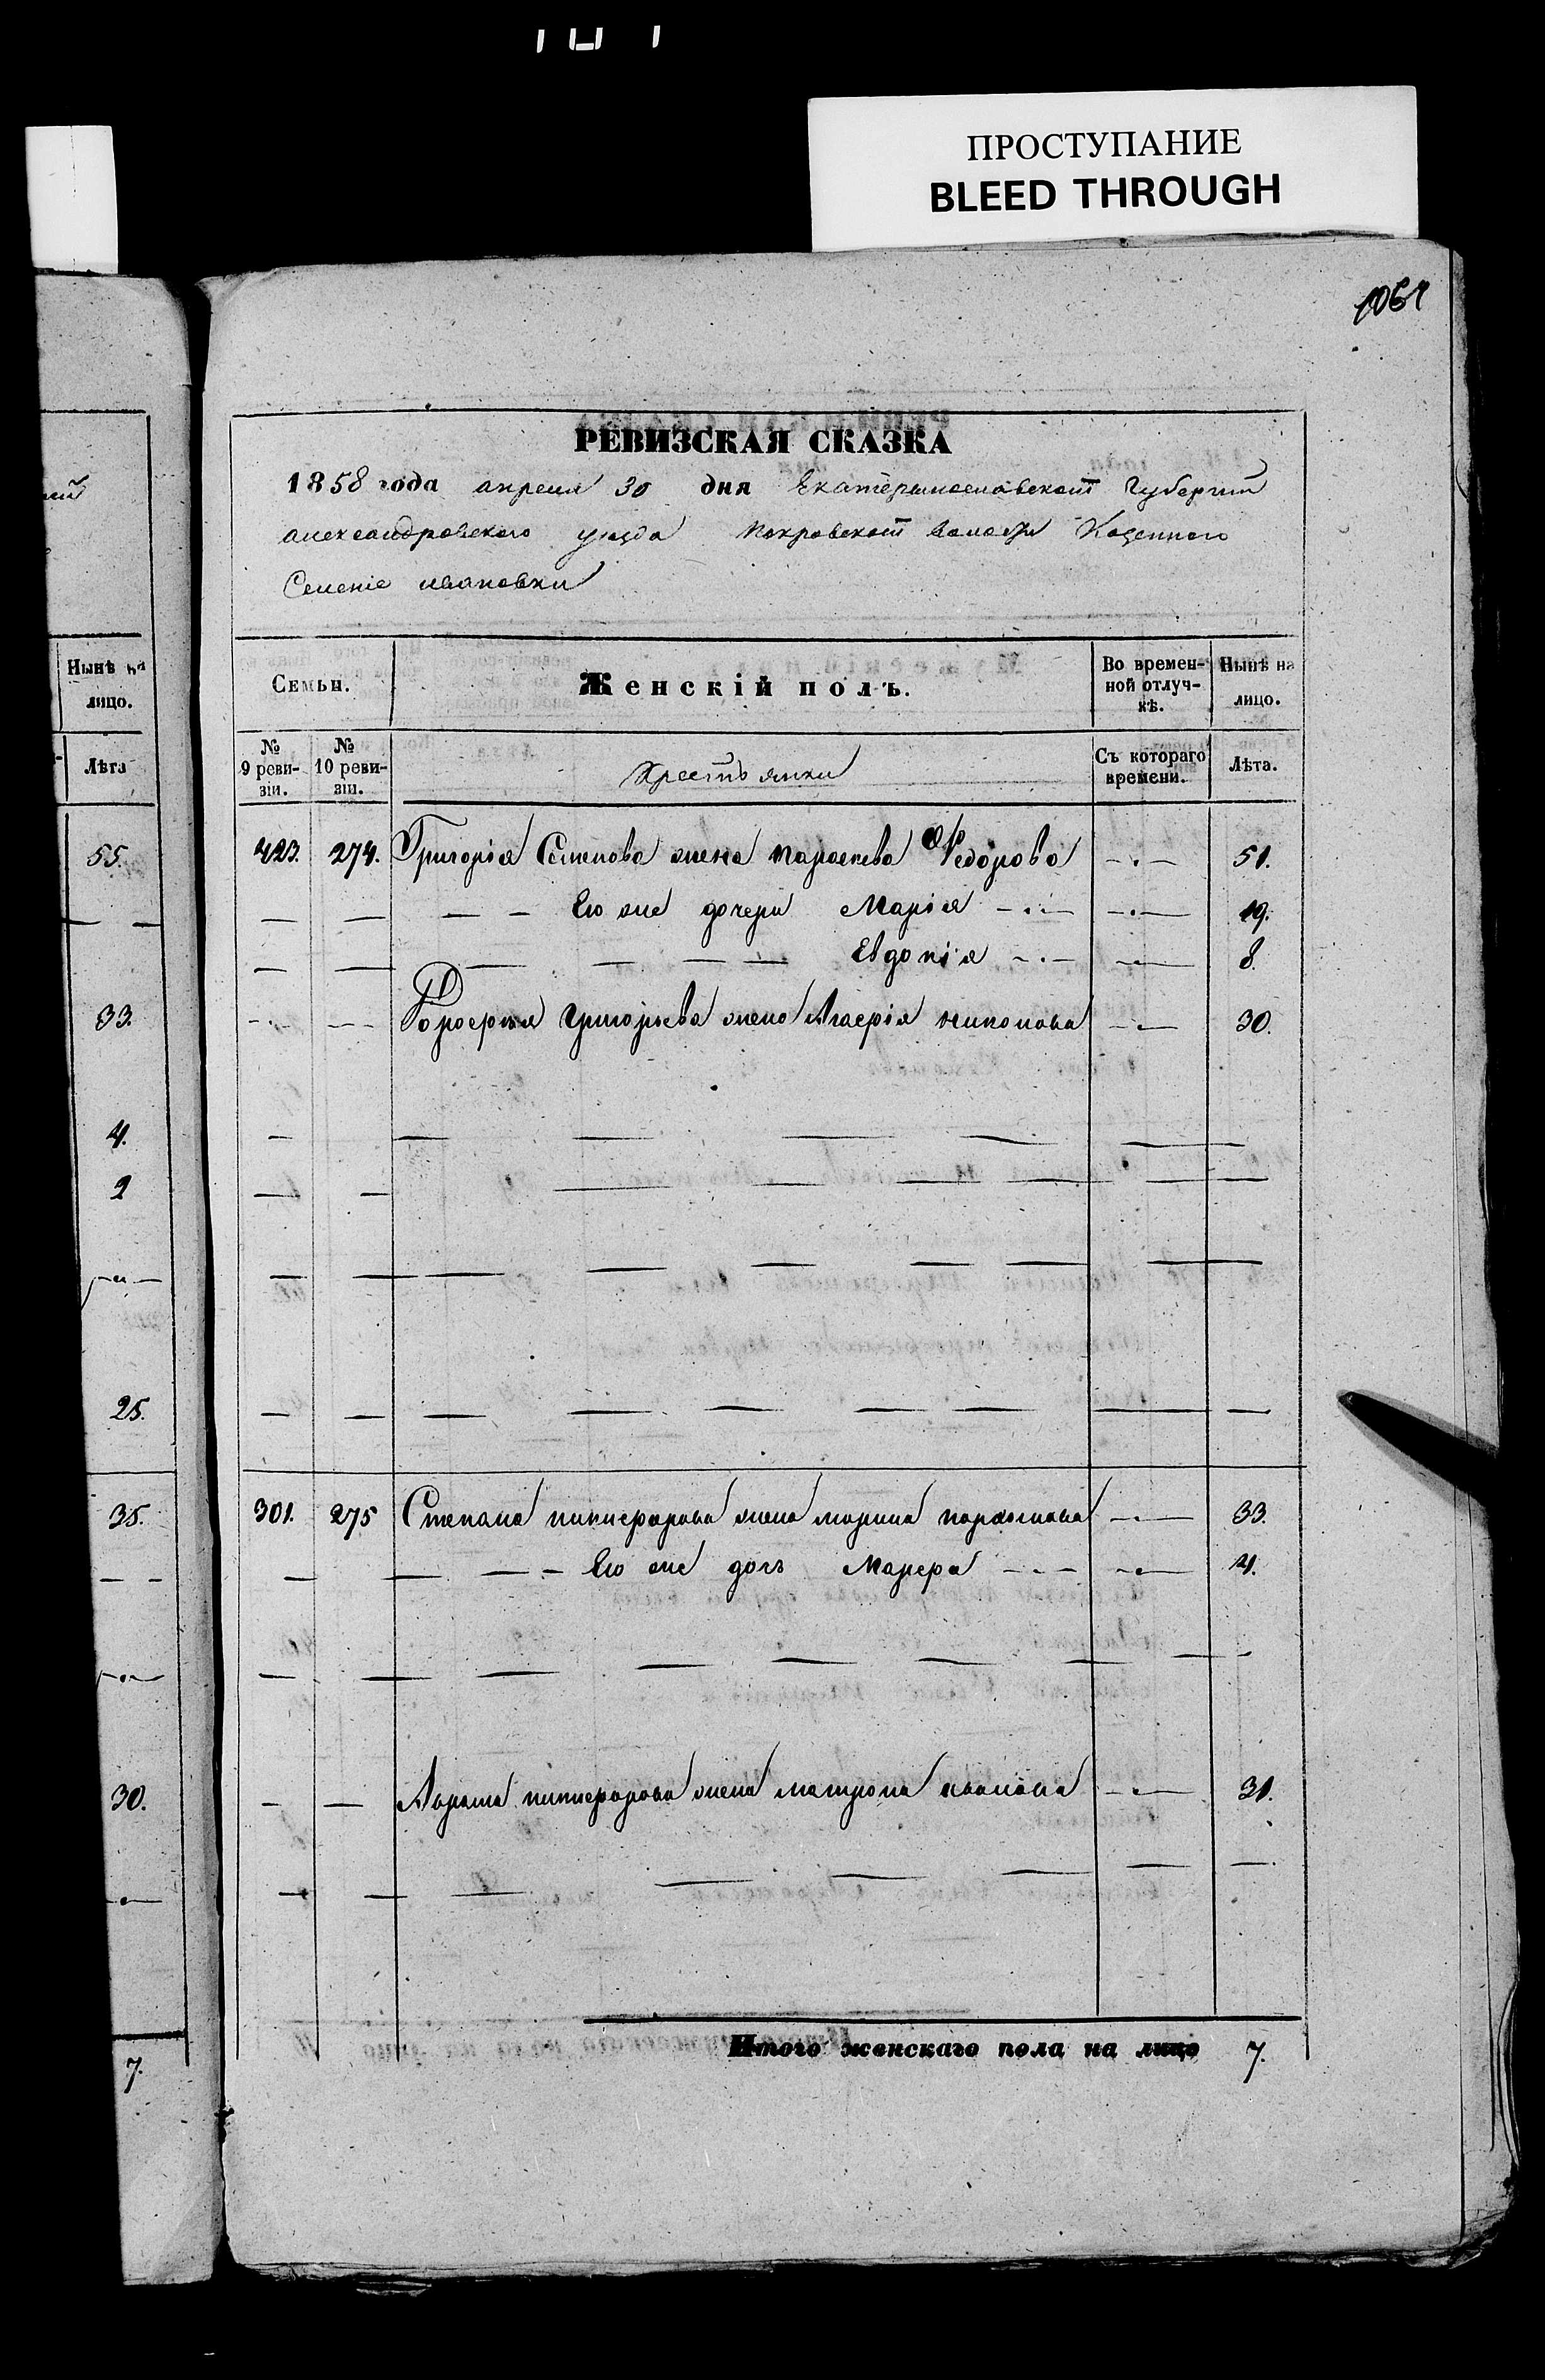 ПРОСТУПАНИЕ
BLEED THROUGH
РЕВИЗСКАЯ СКАЗКА
1858 года апреля 30 дня Екатеринославской Губернии
александровского уезда Покровской Волости Казенного
Селенiе ивановки
Нынѣ на
лицо.
Лѣта
55.
33.
4.
2
25.
35.
30.
7.
Семьи.
Женскiй полъ.
Во времен-
ной отлуч-
кѣ.
Нынѣ на
лицо.
№
9 реви-
зiи.
№
10 реви-
зiи.
Крестьянки
Съ котораго
времени.
Лѣта.
423. 274. Григорiя Семенова жена параскева Федорова 51.
Его же дочери Марiя 19.
Евдокiя 8.
Григорьева жена 30.
301. 275 Степана никифорова жена марина пархомова 33.
Его же дочь 4.
Абрама никифорова жена матрона иванова 31.
Итого женскаго пола на лицо 7.